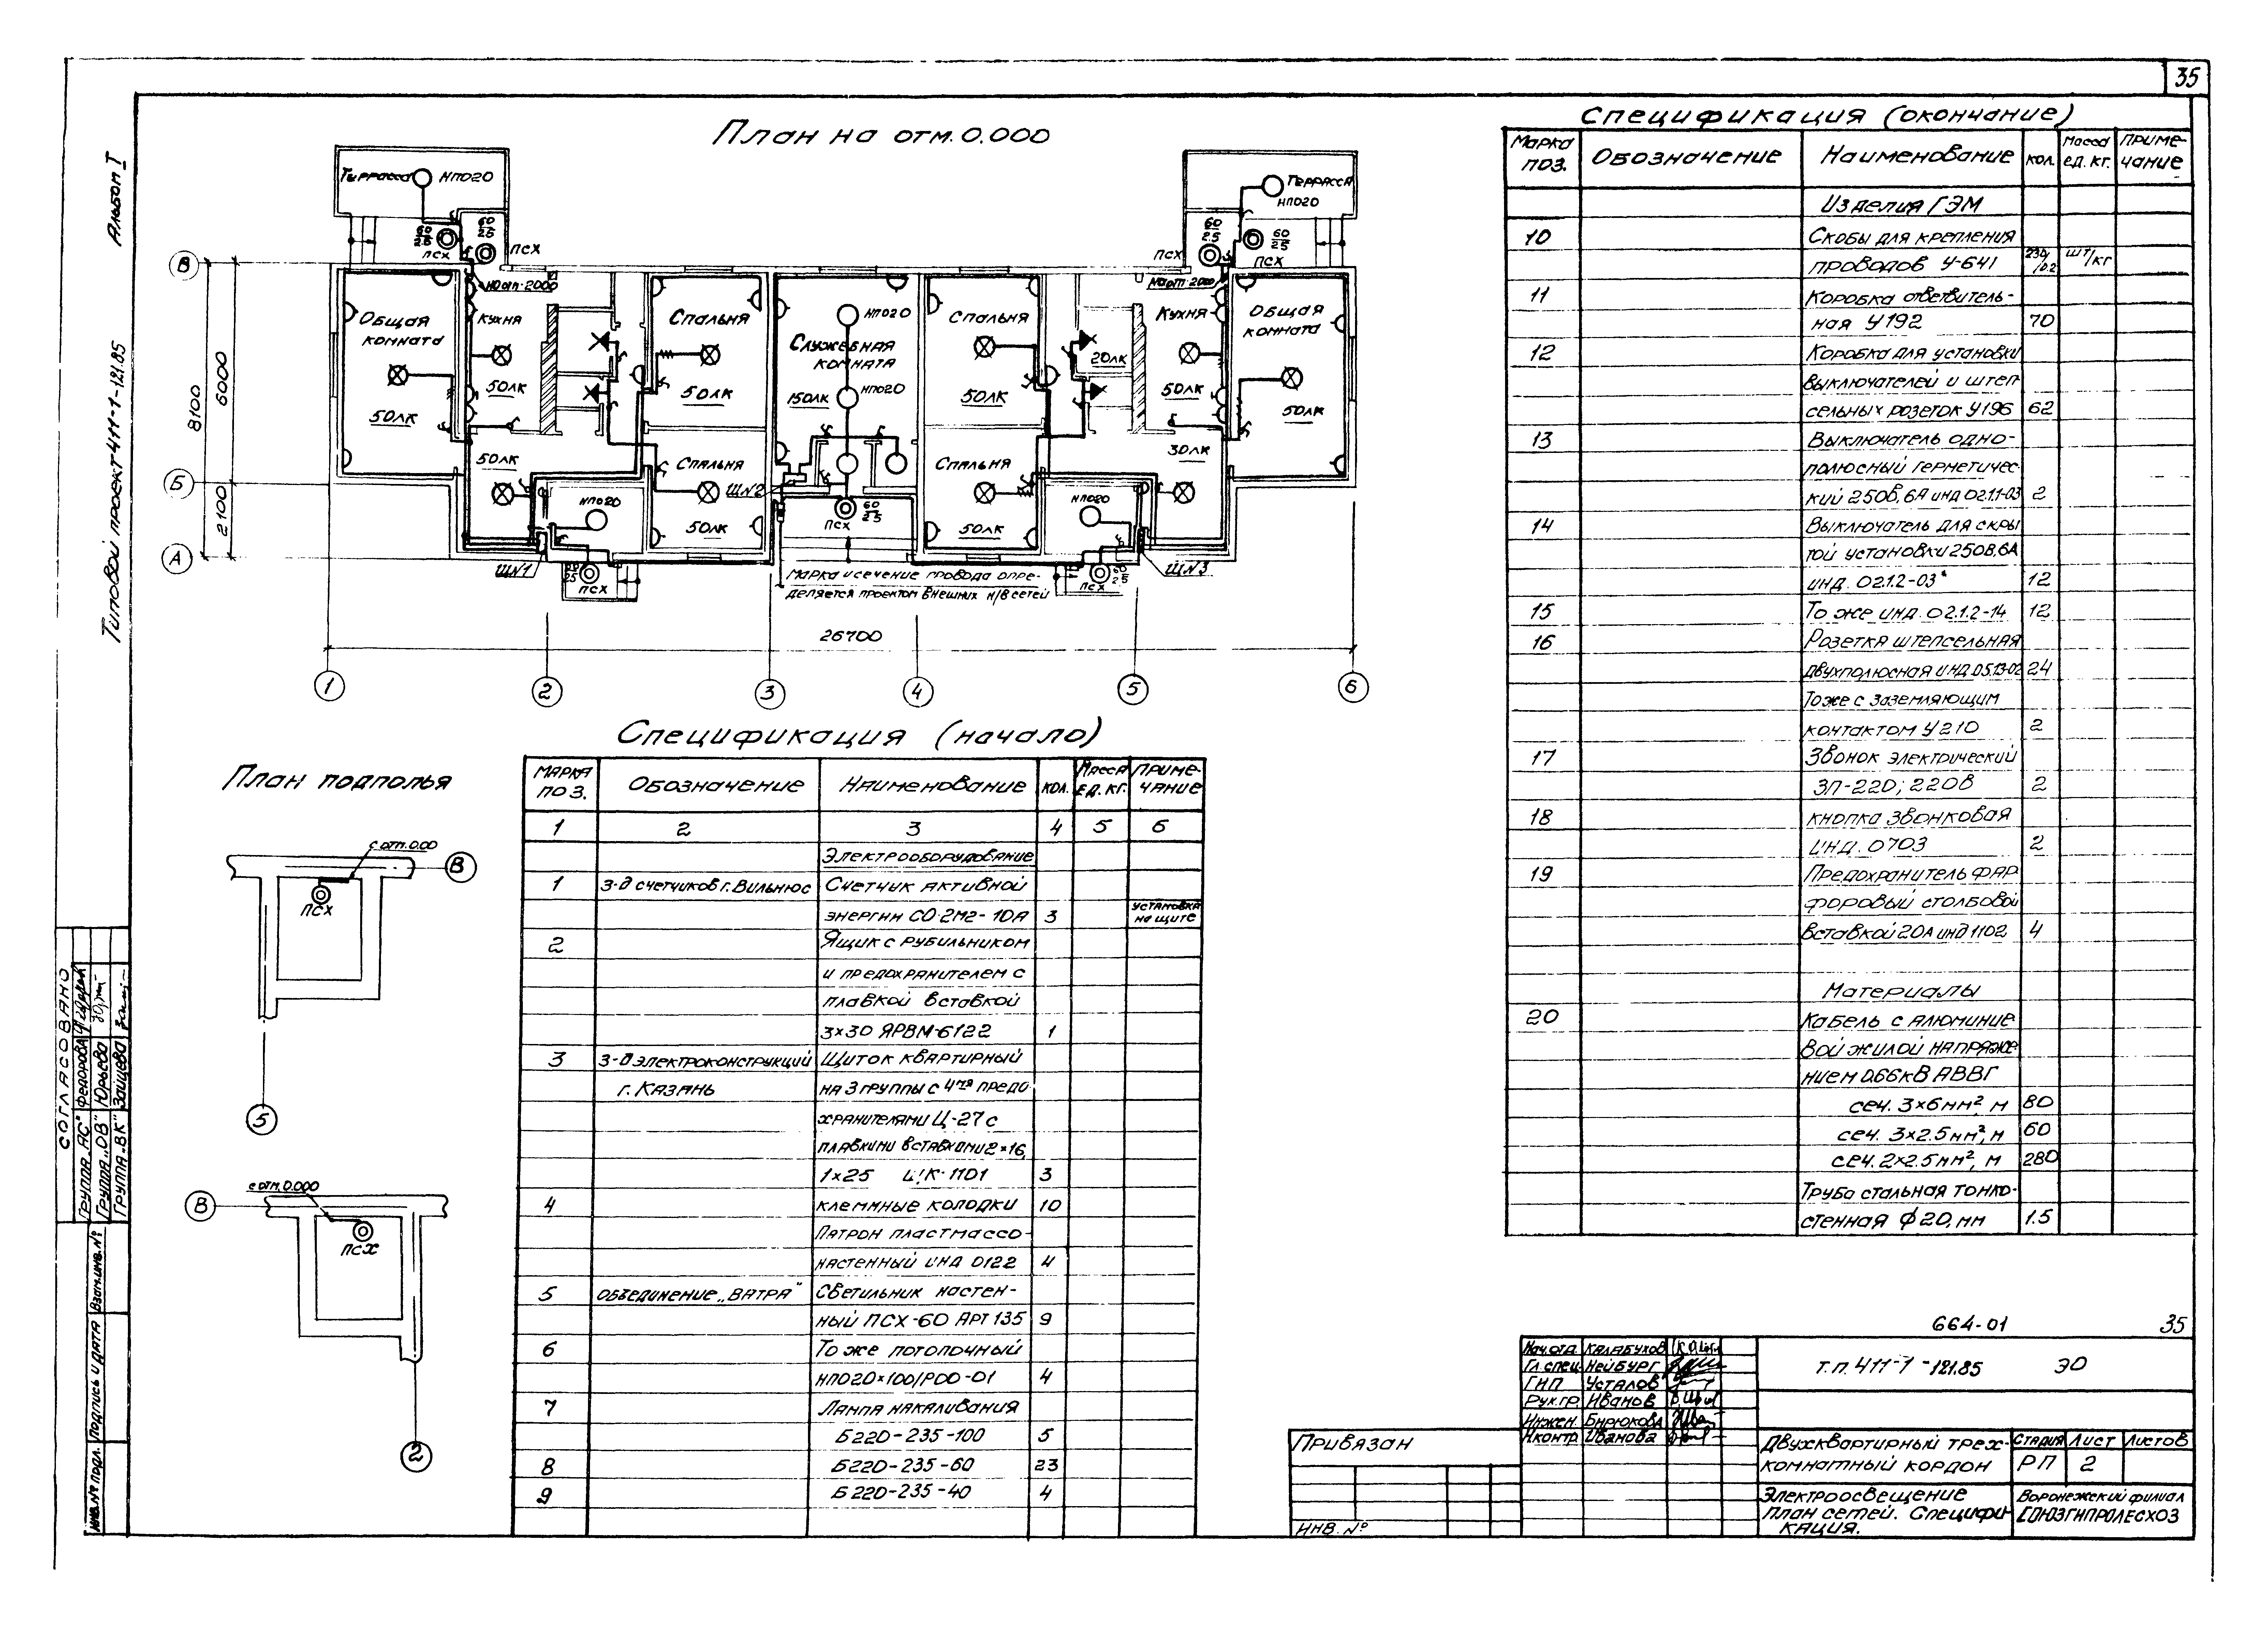 35
Альбом I
Типовой проект 411-1-121.85
План на отм. 0.000
Терраса НПО20
60
25
ПСХ
60
25
ПСХ
Терраса
НПО20
60
25
60
25
ПСХ
ПСХ
В
Б
А
8100
6000
2100
Общая
комната
50лк
Кухня
50лк
50лк
Спальня
50лк
Спальня
50лк
НПО20
Служебная
комната
НПО20
НПО20
150лк
Щ№2
ПСХ
60
25
Спальня
50лк
Спальня
50лк
20лк
Кухня
50лк
30лк
НПО20
Общая
комната
50лк
Щ№1
ПСХ
Щ№3
ПСХ
Марка и сечение провода опре-
деляется проектом внешних н/в сетей
26700
1
2
3
4
5
6
План подполья
с отм. 0.00
В
ПСХ
5
с отм. 0.000
В
ПСХ
2
Спецификация (начало)
Марка поз. Обозначение Наименование кол. Масса ед. кг. Приме-чание
1 2 3 4 5 6
Электрооборудование
1 З-д счетчиков г. Вильнюс Счетчик активной
энергии СО-2М2-10А 3 установка на щите
2 Ящик с рубильником
и предохранителем с
плавкой вставкой
3×30 ЯРВМ-6122 1
3 З-д электроконструкций Щиток квартирный
г. Казань на 3 группы с 4мя предо
хранителями Ц-27 с
плавкими вставками 2×16,
1×25 ЩК-1101 3
4 клеммные колодки 10
Патрон пластмассо-
настенный инд 0122 4
5 Объединение „Ватра" Светильник настен-
ный ПСХ-60 Арт 135 9
6 То же потолочный
НПО20×100/Р00-01 4
7 Лампа накаливания
Б220-235-100 5
8 Б220-235-60 23
9 Б220-235-40 4
Спецификация (окончание)
Марка поз. Обозначение Наименование кол. Масса ед. кг. Приме-чание
Изделия ГЭМ
10 Скобы для крепления
проводов У-641 230/0.2 шт/кг
11 Коробка ответвитель-
ная У192 70
12 Коробка для установки
выключателей и штеп
сельных розеток У196 62
13 Выключатель одно-
полюсный герметичес-
кий 250В, 6А инд 02.1.1-03 2
14 Выключатель для скры
той установки 250В, 6А
инд. 02.1.2-03 12
15 То же инд. 02.1.2-14 12
16 Розетка штепсельная
двухполюсная инд. 05.13-02 24
То же с заземляющим
контактом У210 2
17 Звонок электрический
ЗП-220; 220В 2
18 кнопка звонковая
инд. 0703 2
19 Предохранитель фар
форовый столбовой
вставкой 20А инд 1102 4
Материалы
20 Кабель с алюминие
вой жилой напряже
нием 0.66кВ АВВГ
сеч. 3×6мм², м 80
сеч. 3×2.5мм², м 60
сеч. 2×2.5мм², м 280
Труба стальная тонко-
стенная ф20, мм 1.5
664-01 35
Нач.отд. Калабухов
Гл.спец Нейбург
ГИП Усталов
Рук.гр. Иванов
Инжен. Бирюкова
Н.контр Иванова
Т.П. 411-1-121.85 ЭО
Двухквартирный трех-
комнатный кордон
Стадия Лист Листов
РП 2
Электроосвещение
План сетей. Специфи-
кация.
Воронежский филиал
СОЮЗГИПРОЛЕСХОЗ
Привязан
Инв. №
СОГЛАСОВАНО
Группа „АС" Федорова
Группа „ОВ" Юрьева
Группа „ВК" Зайцева
Взам.инв. №
Подпись и дата
Инв. № подл.